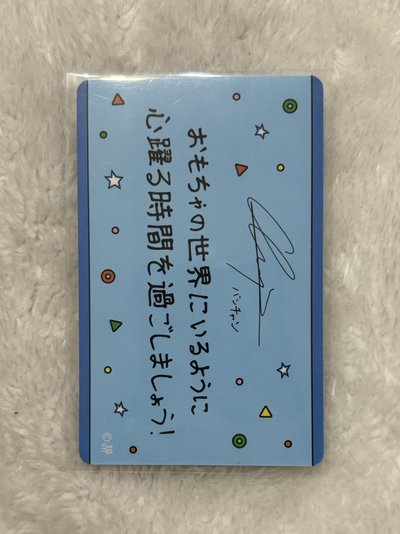 おもちゃの世界にいるように
心躍る時間を過ごしましょう!
バンチャン